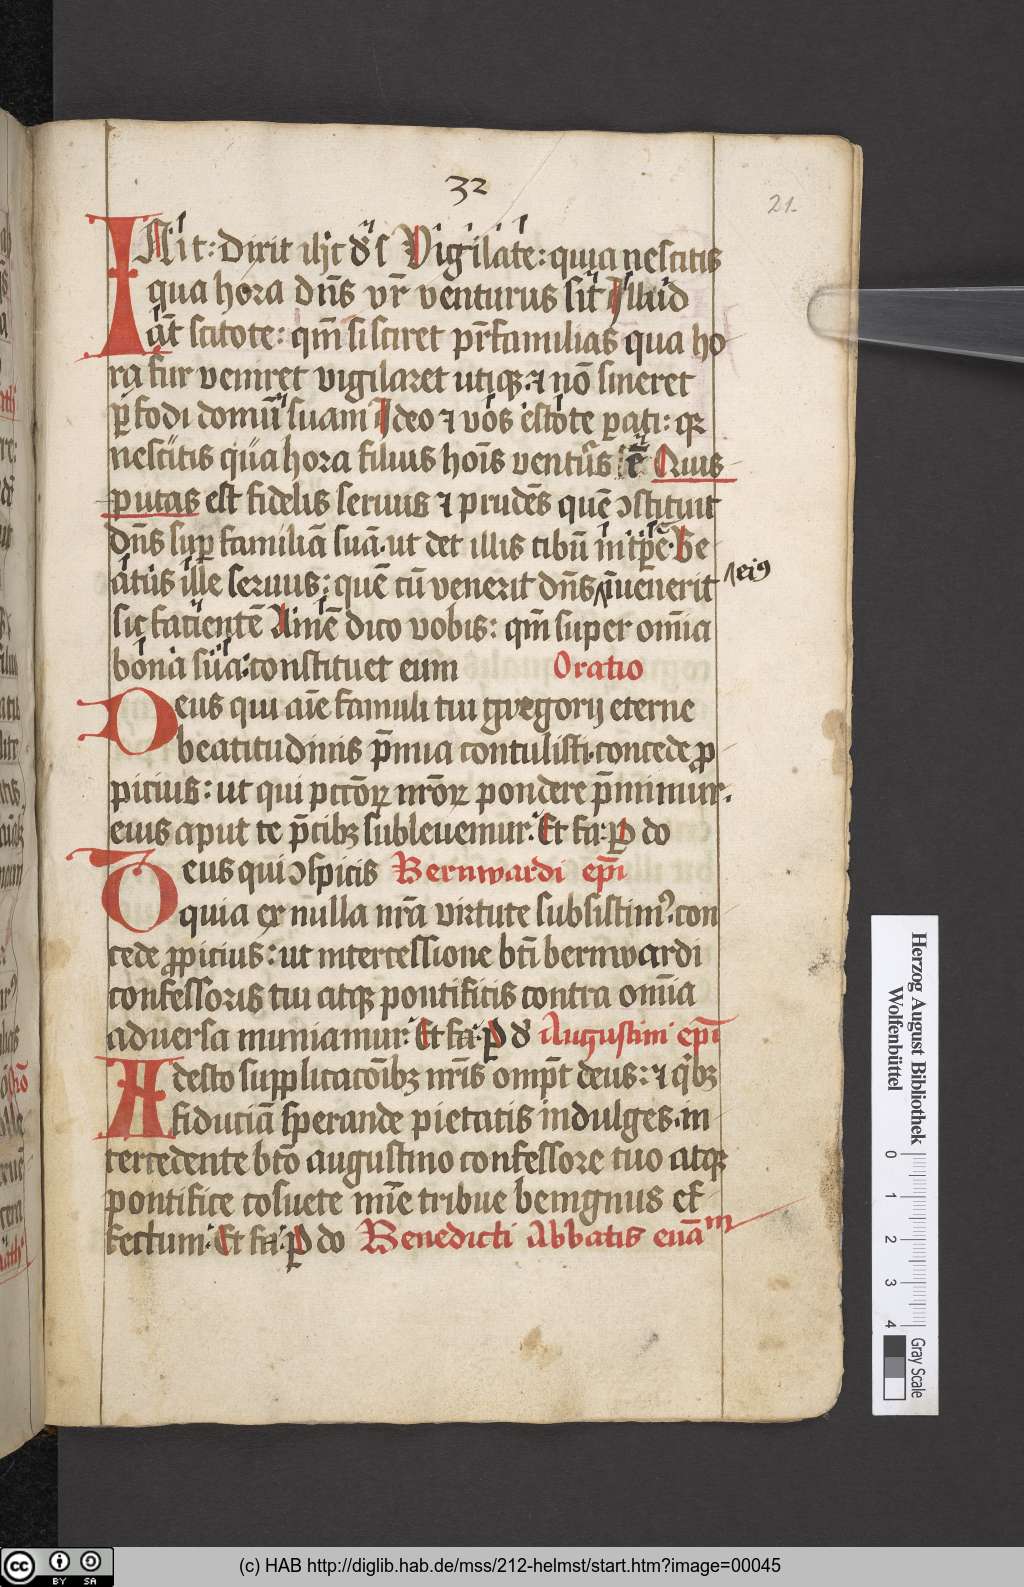 32
21.
IN iƚƚ t: Dixit ihc ds Vigilate: quia nescitis
qua hora dns vr venturus sit Illud
at scitote: qm si sciret pr familias qua ho
ra fur veniret vigilaret utiqꝫ ⁊ no sineret
ꝑfodi domu suam Ideo ⁊ vos estote pati: qꝛ
nescitis qua hora filius hois ventus Quis
putas est fidelis seruus ⁊ prudes que ↄstituit
dns suꝑ familia sua. ut det illis cibu in tpe. Be
atus ille seruus: que cu venerit dns inuenerit eiꝰ
sic faciente Ame dico vobis: qm super omia
bona sua: constituet eum Oratio
Deus qui aie famuli tui gregorij eterne
beatitudinis pmia contulisti. concede ꝓ
picius: ut qui pctoꝝ nroꝝ pondere pmimur.
eius aput te pcibꝫ subleuemur. Et fa. P do
Deus qui ↄspicis Bernwardi epi
quia ex nulla nra virtute subsistimꝰ. con
cede ꝓpicius: ut intercessione bti bernwardi
confessoris tui atqꝫ pontificis contra omia
aduersa muniamur. Et fa. P do Augustini epi
Adesto supplicacoibꝫ nris ompt deus: ⁊ qbꝫ
fiduciā sperande pietatis indulges. in
tercedente bto augustino confessore tuo atqꝫ
pontifice cosuete mie tribue benignus ef
fectum. Et fa. P do Benedicti Abbatis eua m
Herzog August Bibliothek
Wolfenbüttel
0 1 2 3 4
Gray Scale
cc BY SA
(c) HAB http://diglib.hab.de/mss/212-helmst/start.htm?image=00045